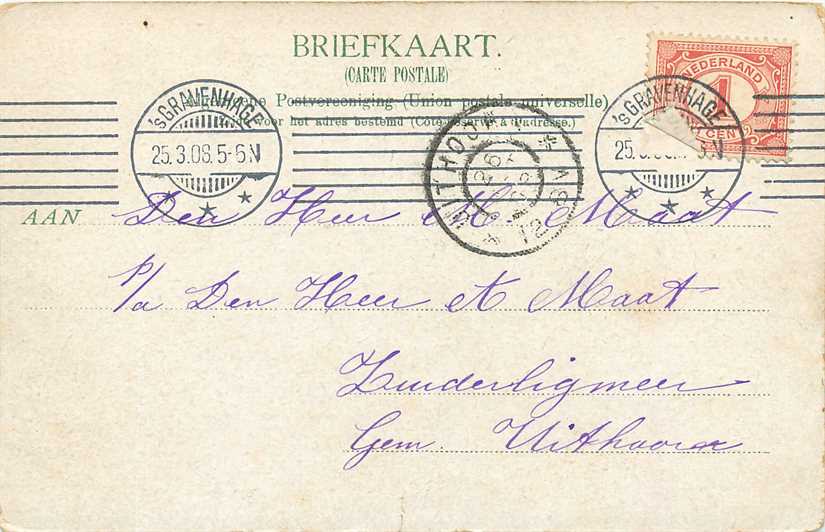 BRIEFKAART.
(CARTE POSTALE)
Algemeene Postvereeniging (Union postale universelle)
Zijde voor het adres bestemd (Côté réservé à l'adresse.)
NEDERLAND
1
CENT
'SGRAVENHAGE
25.3.08.5-6N
'SGRAVENHAGE
25.
UITHOORN
AAN Den Heer A Maat
p/a Den Heer A Maat
Zuiderligmeer
Gem. Uithoorn